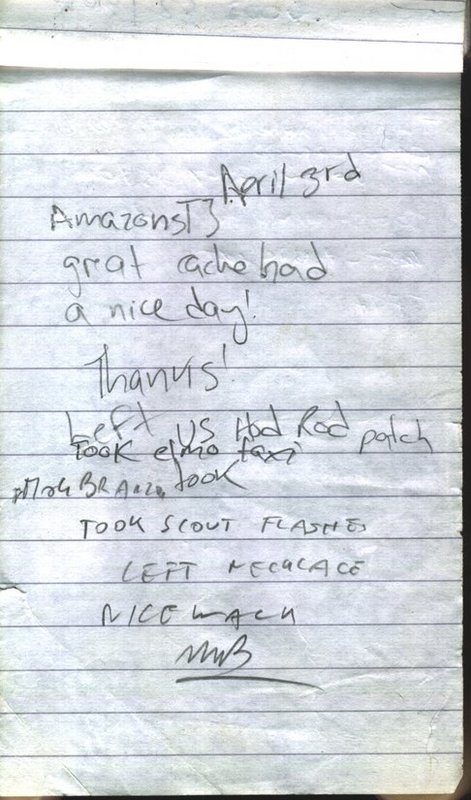 April 3rd
AmazonsT3
great cache had
a nice day!
Thanks!
Left US Hod Rod patch
Took elmo taxi
took
TOOK SCOUT FLASHES
LEFT NECKLACE
NICE WALK